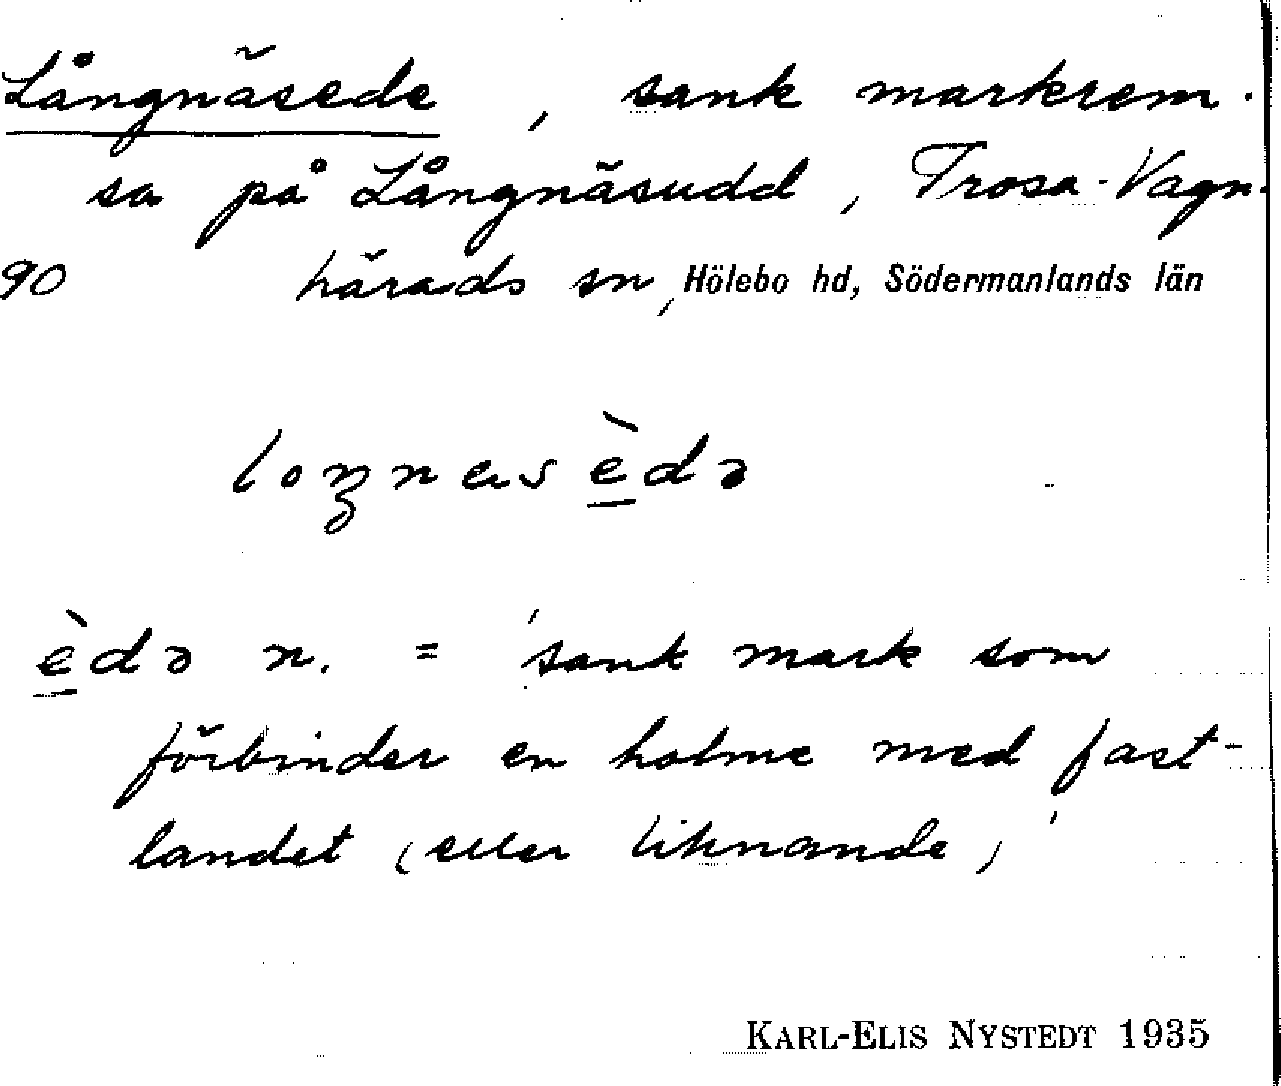 Långnäsede, sank markrem-
sa på Långnäsudd, Trosa-Vagn-
90 härads sn, Hölebo hd, Södermanlands län
loŋnasèdə
èdə n. = 'sank mark som
förbinder en holme med fast-
landet (eller liknande)'
KARL-ELIS NYSTEDT 1935